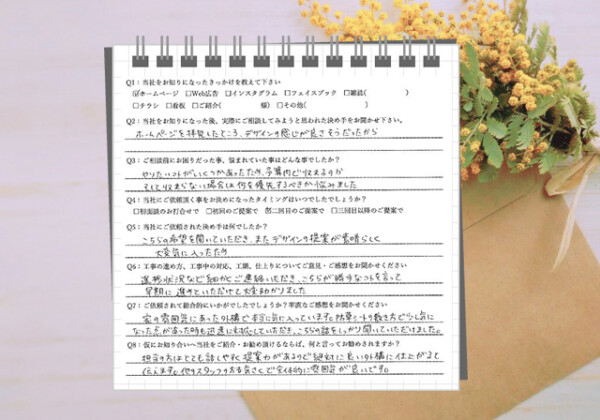 Q1：当社をお知りになったきっかけを教えて下さい
☑ホームページ □Web広告 □インスタグラム □フェイスブック □雑誌( )
□チラシ □看板 □ご紹介( 様) □その他( )
Q2：当社をお知りになった後、実際にご相談してみようと思われた決め手をお聞かせ下さい。
ホームページを拝見したところ、デザインの感じが良さそうだったから
Q3：ご相談前にお困りだった事、悩まれていた事はどんな事でしたか？
やりたいコトがいくつかあったため、予算内で収まるのか
そして収まらない場合は何を優先するべきか悩みました
Q4：当社にご依頼頂く事をお決めになったタイミングはいつでしたでしょうか？
□初面談のお打合せで □初回のご提案で ☑二回目のご提案で □三回目以降のご提案で
Q5：当社にご依頼された決め手は何でしたか？
こちらの希望を聞いていただき、またデザインの提案が素晴らしく
大変気に入ったため
Q6：工事の進め方、工事中の対応、工期、仕上りについてご意見・ご感想をお聞かせください
進捗状況など細かくご連絡いただき、こちらが嫌がるコトを言って
早期に進めていただけて大変助かりました
Q7：ご依頼されて総合的にいかがでしたでしょうか？率直なご感想をお聞かせください
家の雰囲気にあった外構で本当に気に入っています。防草シートの敷き方で少し気に
なった点があった時も迅速に対応していただき、こちらの話をしっかり聞いていただけました。
Q8：仮にお知り合いへ当社をご紹介・お勧め頂けるならば、何と言ってお勧めされますか？
担当の方はとても話しやすく提案力があるので絶対に良い外構に仕上がると
伝えます。他のスタッフの方も気さくで全体的に雰囲気が良いです。